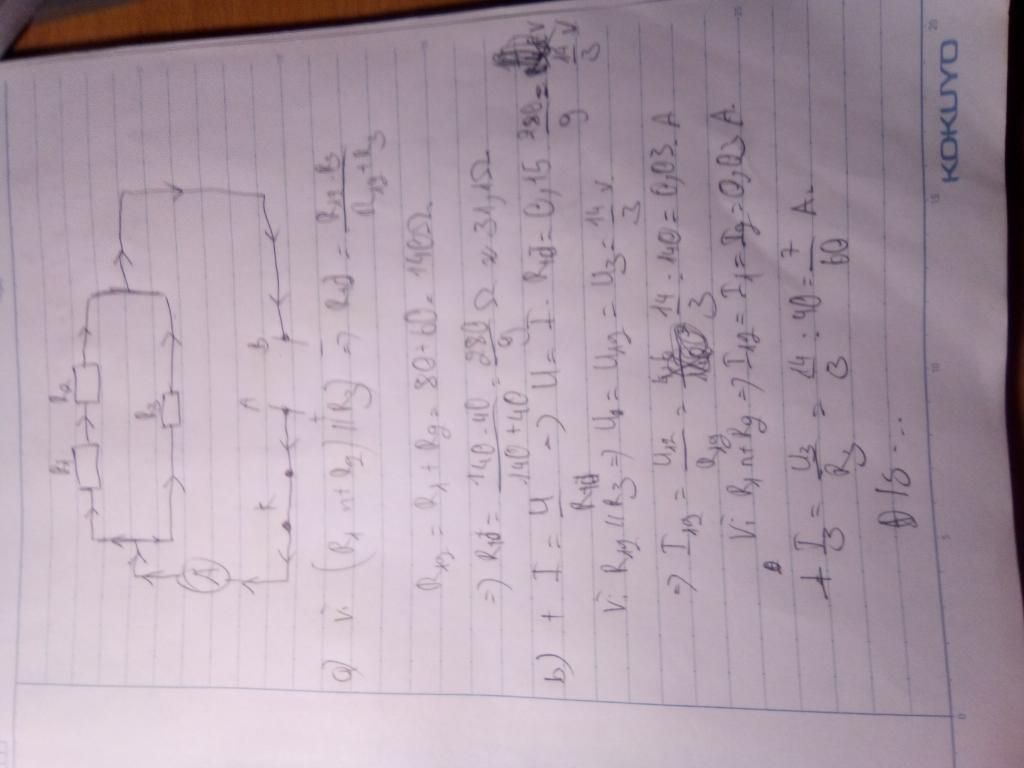 R1 R2
R3
A
K A B
a) Vì (R1 nt R2) // R3 => Rtđ = R12.R3 / R12+R3
R12 = R1 + R2 = 80 + 60 = 140Ω
=> Rtđ = 140.40 / 140+40 = 280/9 Ω ≈ 31,1Ω
b) + I = U/Rtđ => U = I.Rtđ = 0,15 280/9 = 14/3 V
Vì R12//R3 => U = U12 = U3 = 14/3 V
=> I12 = U12/R12 = 14/3 : 140 = 0,03 A
Vì R1 nt R2 => I12 = I1 = I2 = 0,03 A
+ I3 = U3/R3 = 14/3 : 40 = 7/60 A.
Đ/S...
KOKUYO
0 5 10 15 20